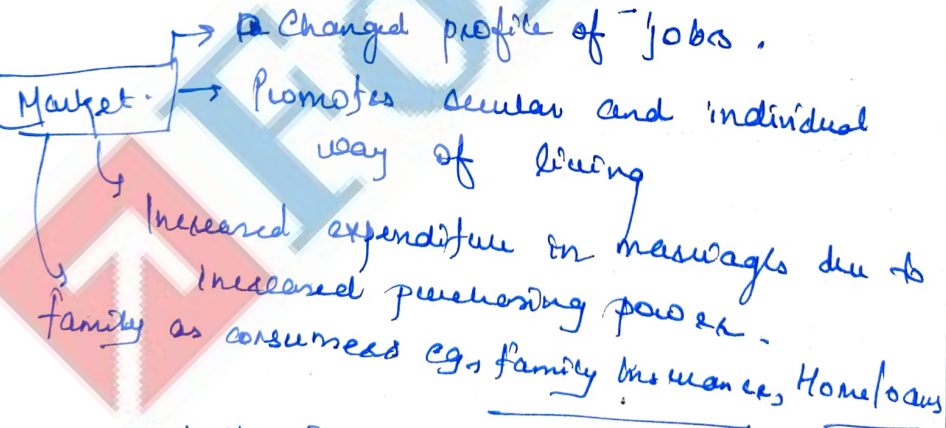 → Changed profile of jobs.
Market. → Promotes secular and individual
way of living
Increased expenditure in marriages due to
increased purchasing power.
family as consumers eg, family insurance, Home loans